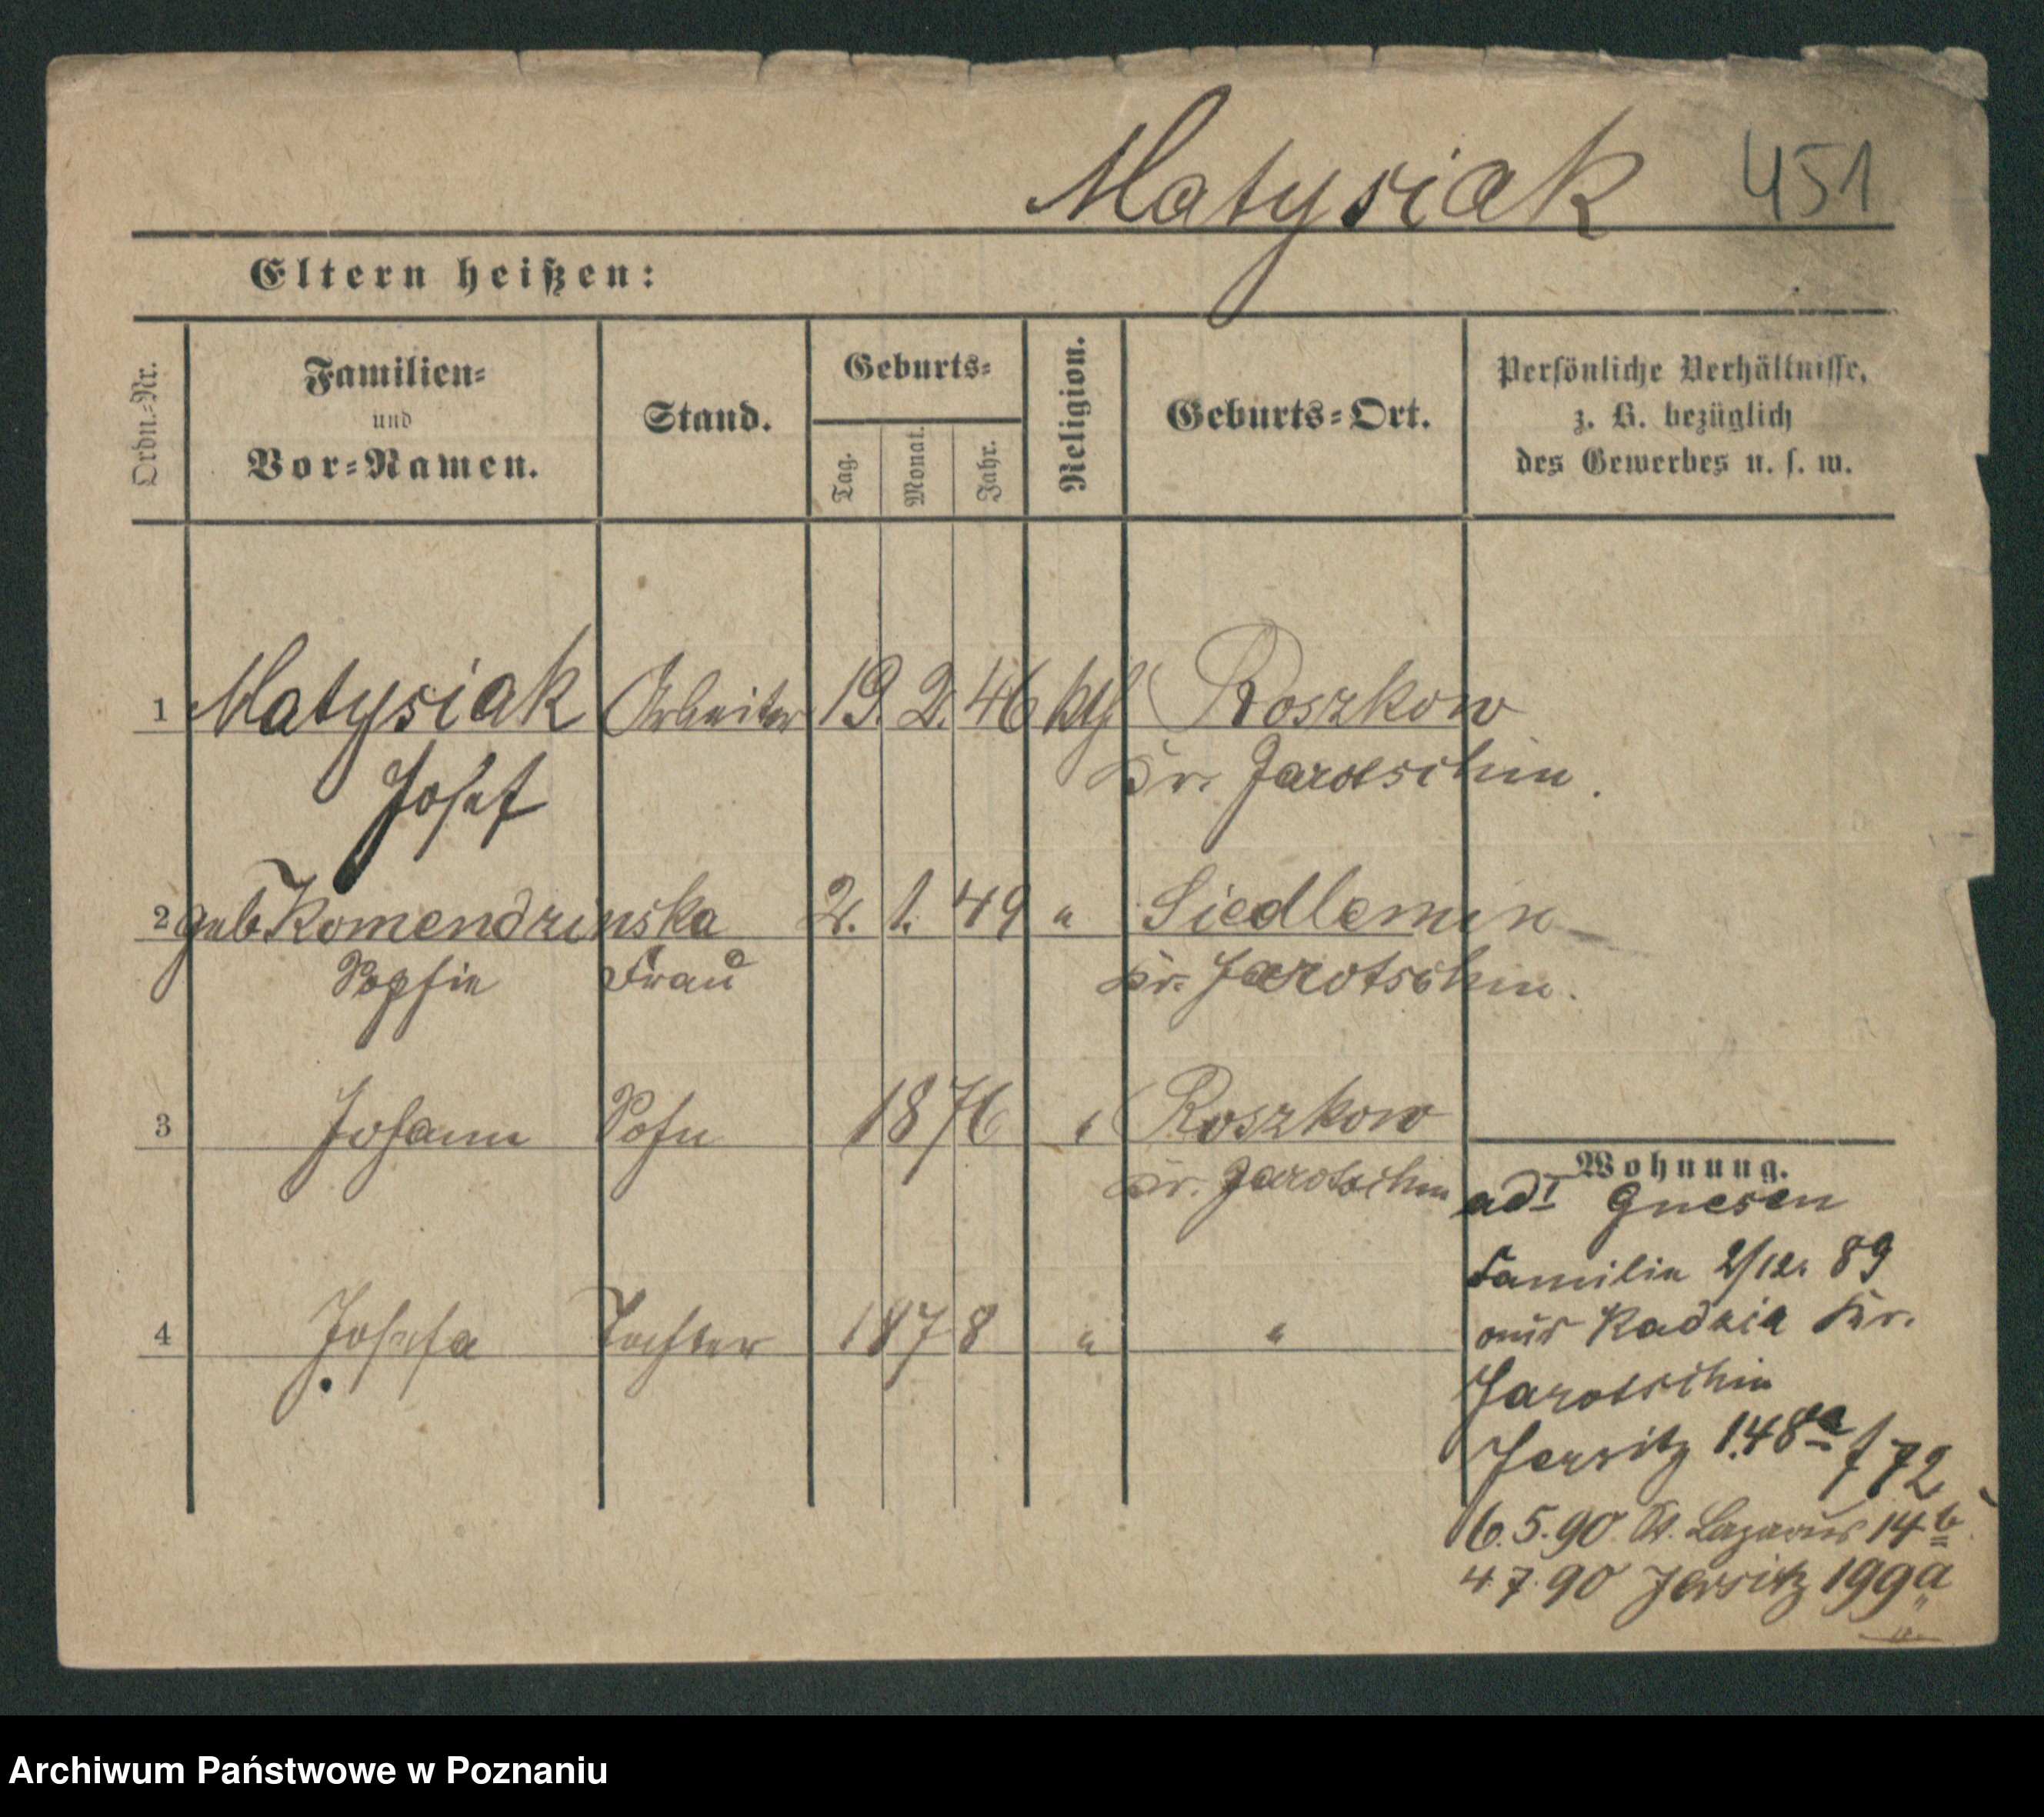 Matysiak 451
Eltern heißen:
Ordn.-Nr.
Familien-
und
Vor-Namen.
Stand.
Geburts-
Tag.
Monat.
Jahr.
Religion.
Geburts-Ort.
Persönliche Verhältnisse,
z. B. bezüglich
des Gewerbes u. s. w.
1 Matysiak Arbeiter 19. 2. 46 kth Roszkow
Josef Kr. Jarotschin.
2 geb Komendzinska 2. 1. 49 " Siedlemin
Sophie Frau Kr. Jarotschin.
3 Johann Sohn 1876 " Roszkow
Kr. Jarotschin
4 Josefa Tochter 1878 " "
Wohnung.
ad I Gnesen
Familie 2/12. 89
aus Radzia Kr.
Jarotschin
Jersitz 148a f 72
6.5.90 St. Lazarus 14b
4.7.90 Jersitz 199a
Archiwum Państwowe w Poznaniu